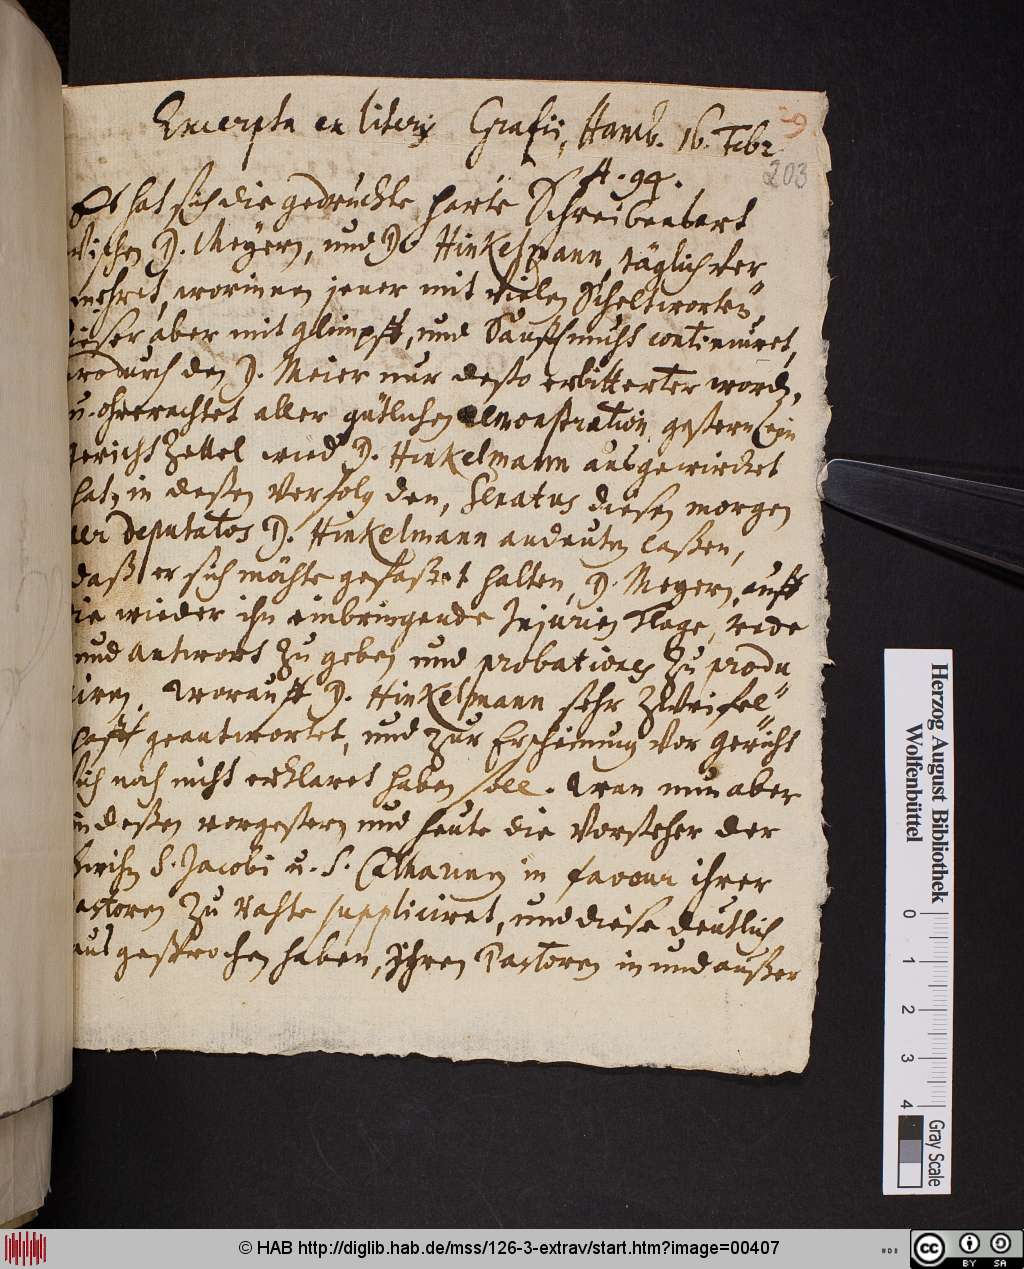 Excerpta ex literis Grafii, Hamb. 16. Febr.
A. 94.
203
Es hat sich die gedruckte harte Schreibensart
wischen D. Meyern, und D. Hinkelmann, täglich ver
mehret, worinnen jener mit vielen Scheltworten,
ieser aber mit glimpff, und Sanfftmuht continuiret,
wodurch den D. Meier nur desto erbitterter word,
u. ohnerachtet aller gütlichen gestern ein
gericht Zettel wied D. Hinkelmann ausgewircket
hat, in deßen Verfolg den, Senatus diesen morgen
per Deputatos D. Hinkelmann andeuten laßen,
daß er sich möchte gefaßet halten, D. Meyern, auff
die wieder ihn einbringende Injurien Klage, rede
und antwort zu geben und probationes zu produ
ciren. Worauff D. Hinkelmann sehr Zweifel
hafft geantwortet, und zur Erscheinung vor gericht
sich noch nicht erklaret haben soll. Wan nun aber
indeßen vorgestern und heute die Vorsteher der
S. Jacobi u. S. Catharinen in faveur ihrer
astoren zu Rahte suppliciret, und diese deutlich
ausgesprochen haben, Ihren Pastoren in und außer
Herzog August Bibliothek
Wolfenbüttel
0 1 2 3 4
Gray Scale
© HAB http://diglib.hab.de/mss/126-3-extrav/start.htm?image=00407
cc BY SA